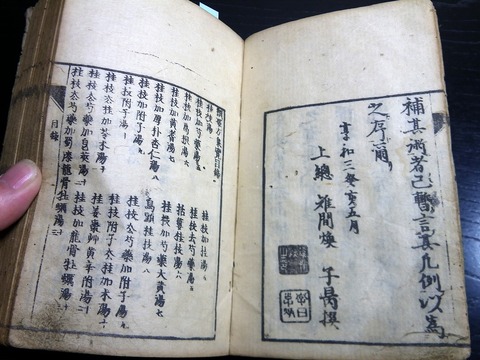 補其漏者已暫言算凡例以為
之序爾
享和三癸亥五月
上總 雉間煥 子昺撰
類聚方集覽目錄
桂枝湯 一
桂枝加桂湯
桂枝加芍藥湯
桂枝去芍藥湯 七
桂枝加黃耆湯 六
栝蔞桂枝湯 八
桂枝加厚朴杏仁湯 八
桂枝加芍藥大黃湯
烏頭桂枝湯
桂枝加附子湯
桂枝去芍藥加附子湯
桂枝附子湯
桂枝附子去桂加朮湯
桂枝去芍藥加皂莢湯
桂姜棗草黃辛附湯
桂枝去芍藥加蜀漆龍骨牡蠣湯
桂枝加龍骨牡蠣湯
目錄